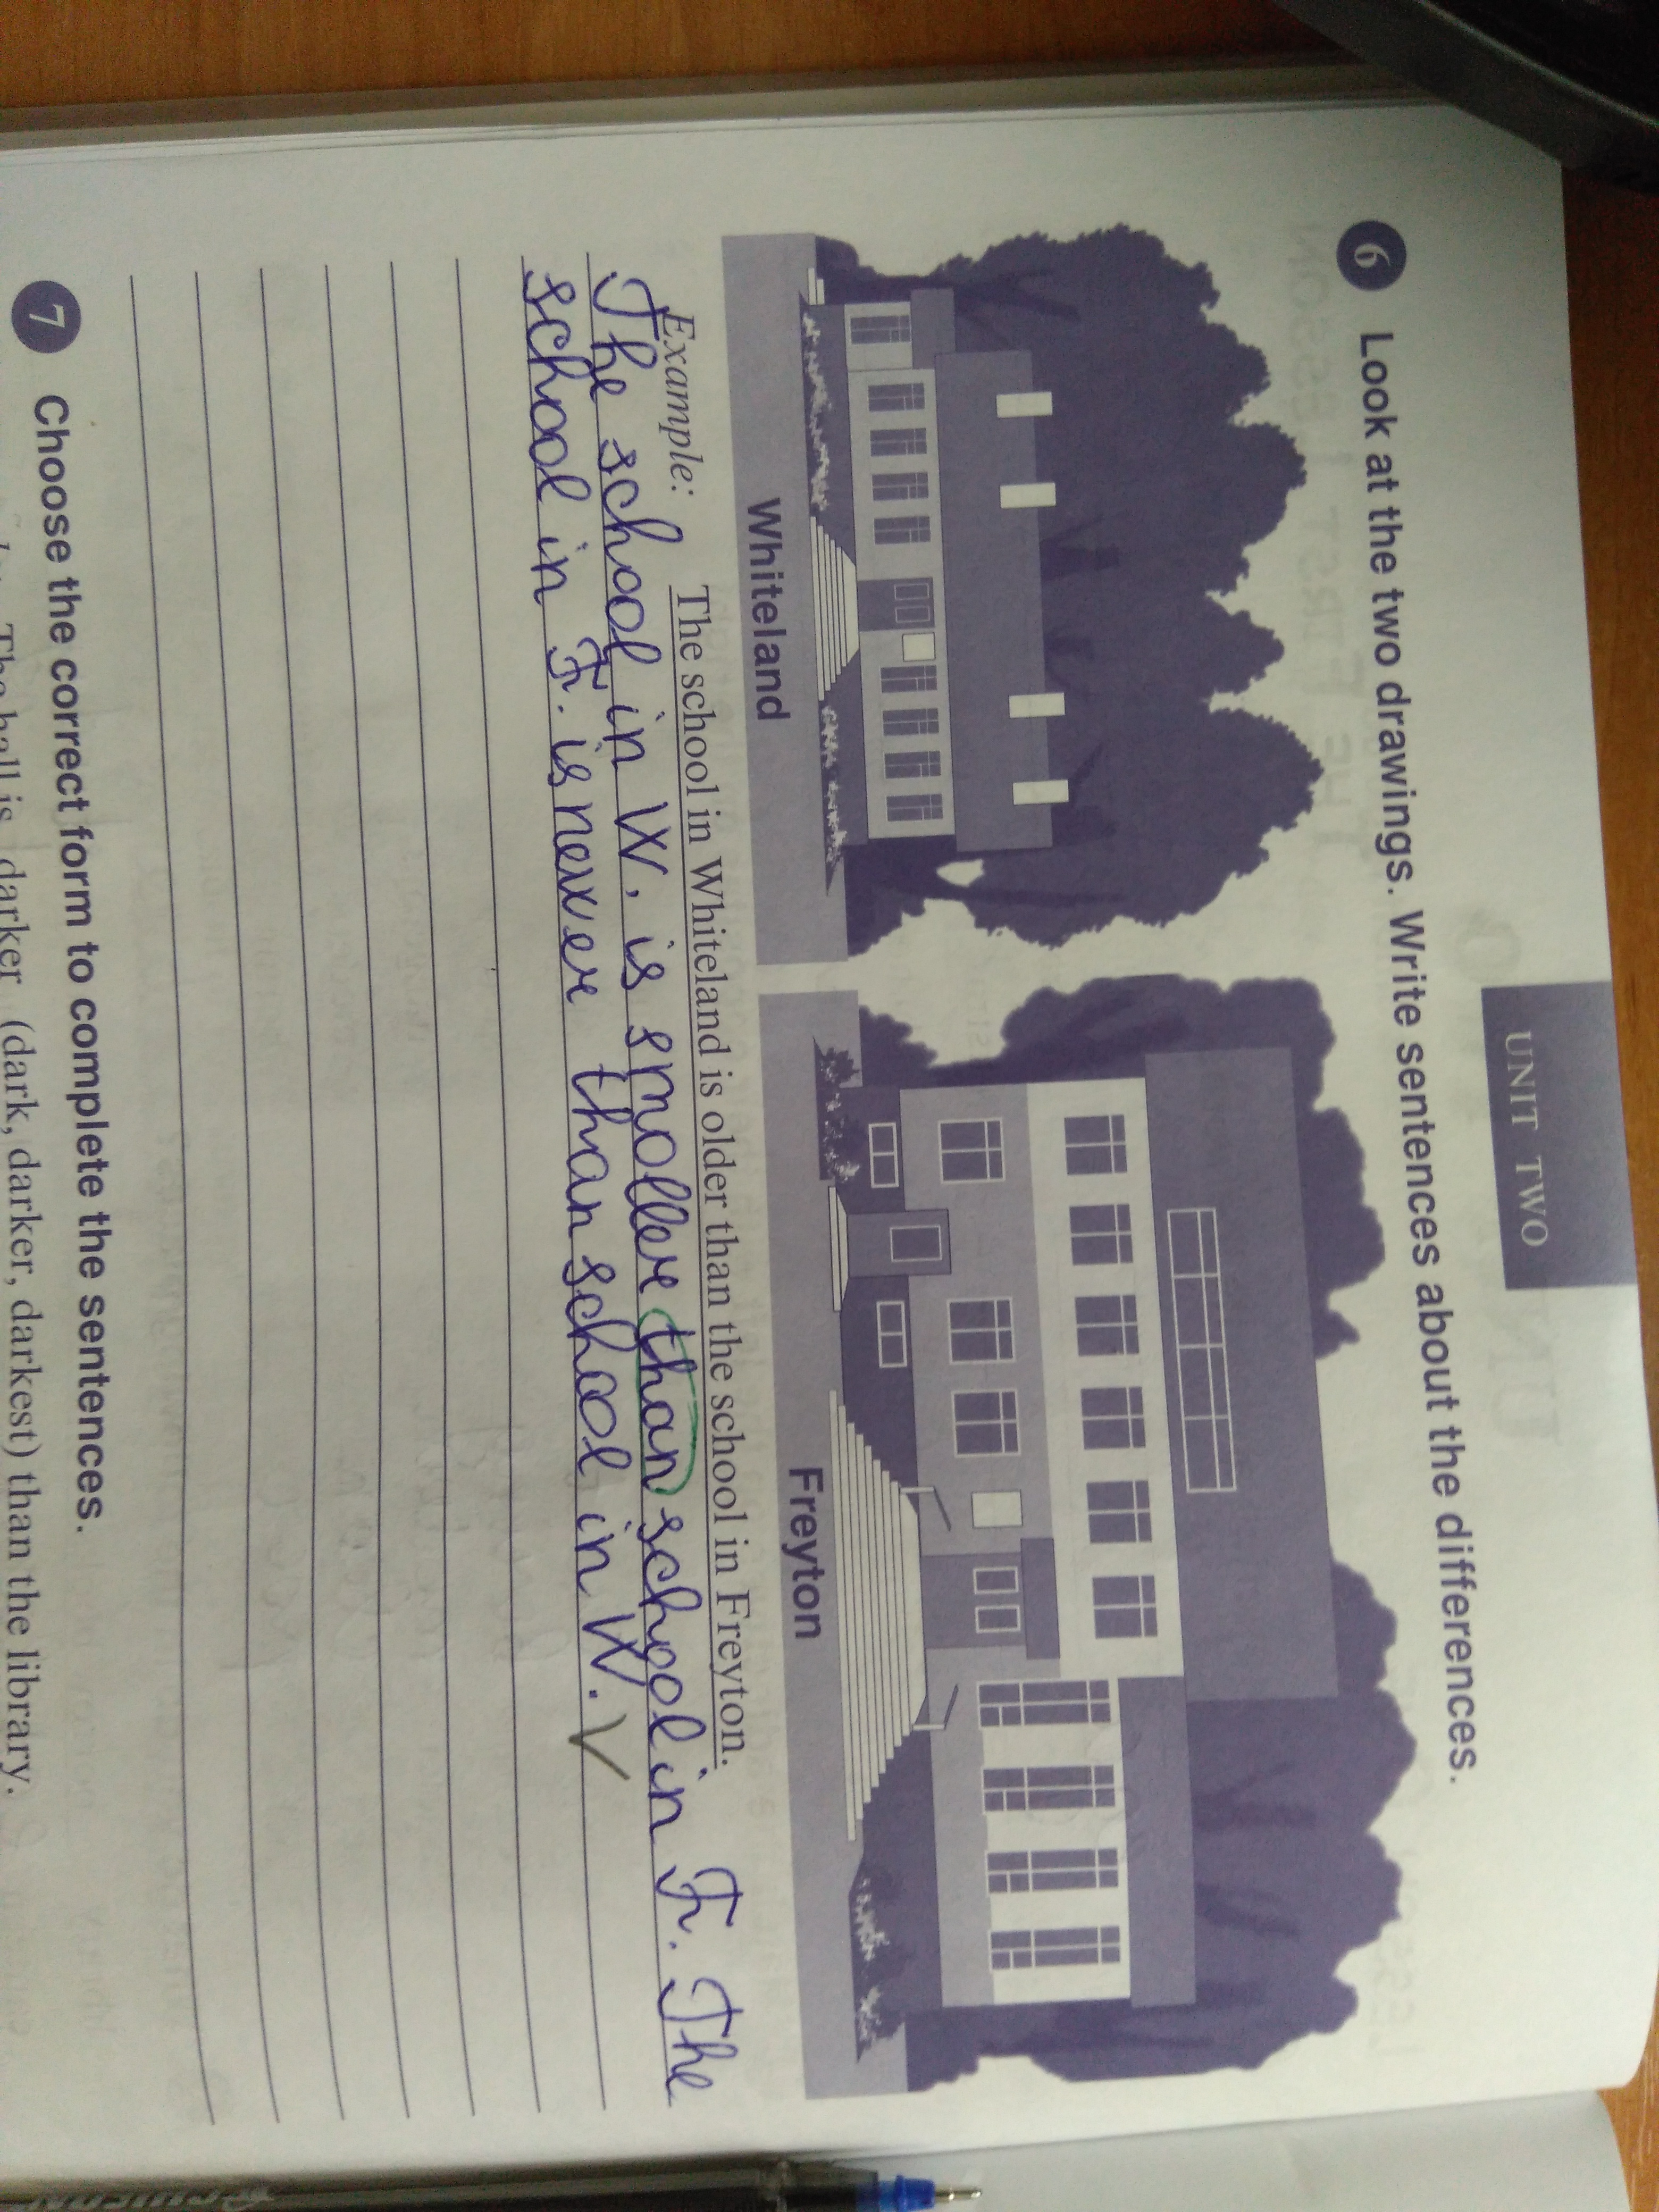 UNIT TWO
6 Look at the two drawings. Write sentences about the differences.
Whiteland Freyton
Example: The school in Whiteland is older than the school in Freyton.
The school in W. is smoller than school in Fr. The
school in Fr. is newer than school in W. V
7 Choose the correct form to complete the sentences.
The hall is darker (dark, darker, darkest) than the library.